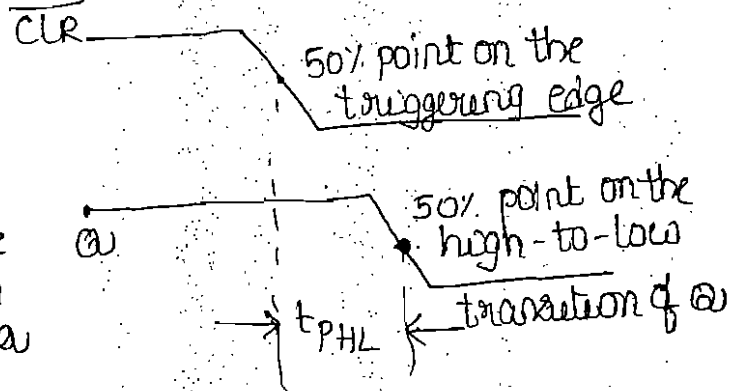 C̅L̅R̅
50% point on the
triggering edge
Q
50% point on the
high-to-low
transition of Q
tPHL